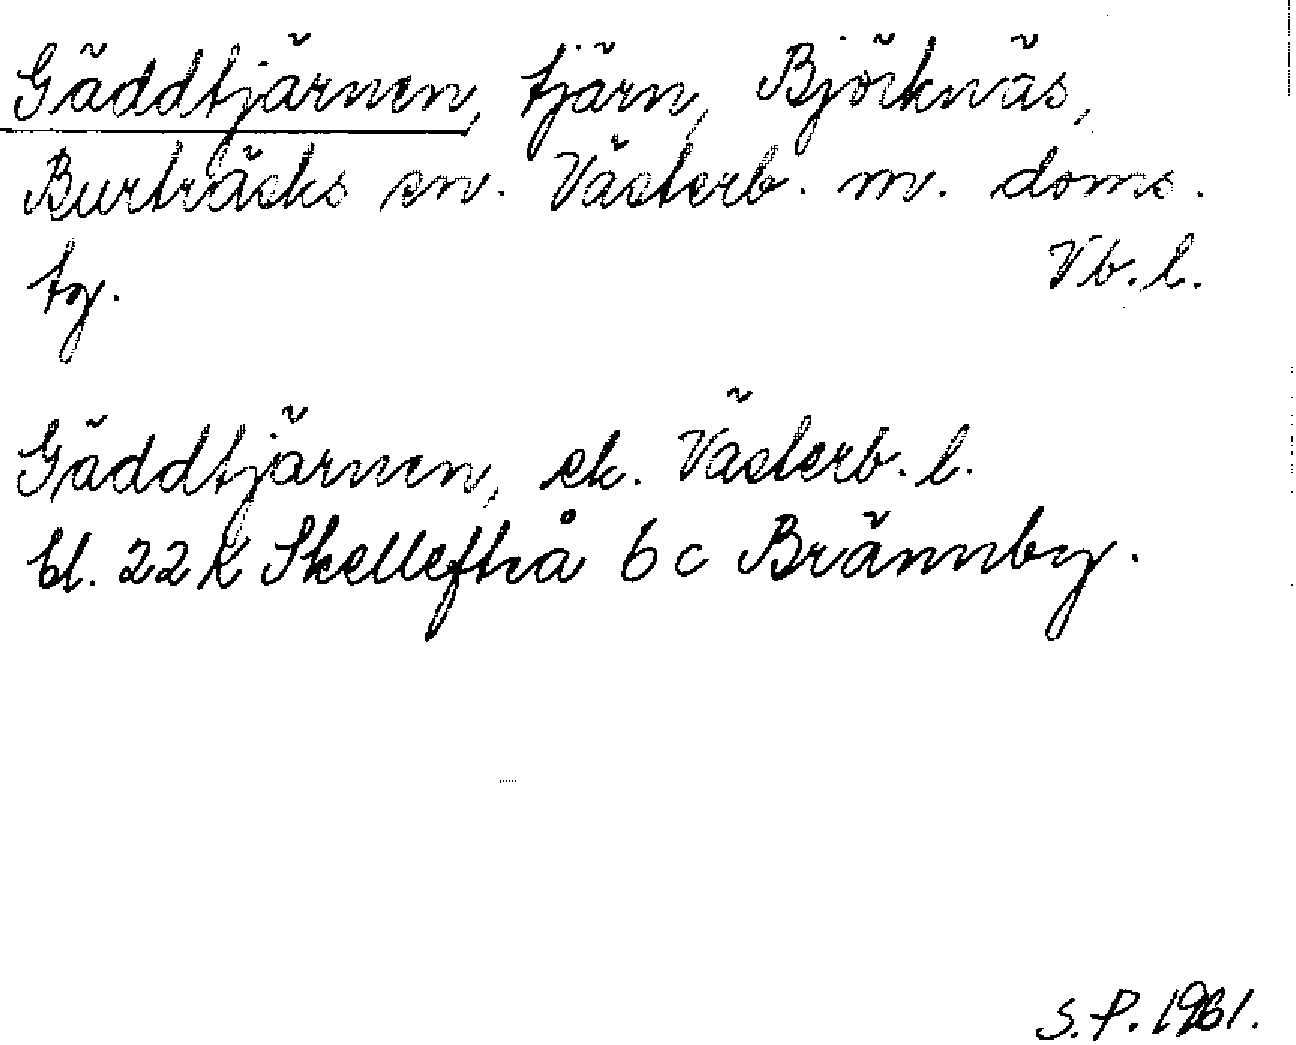 Gäddtjärnen, tjärn, Björknäs,
Burträsks sn. Västerb. m. doms.
tg.
Vb. l.
Gäddtjärnen, ek. Västerb. l.
bl. 22 K Skellefteå 6 c Brännby.
S. P. 1961.